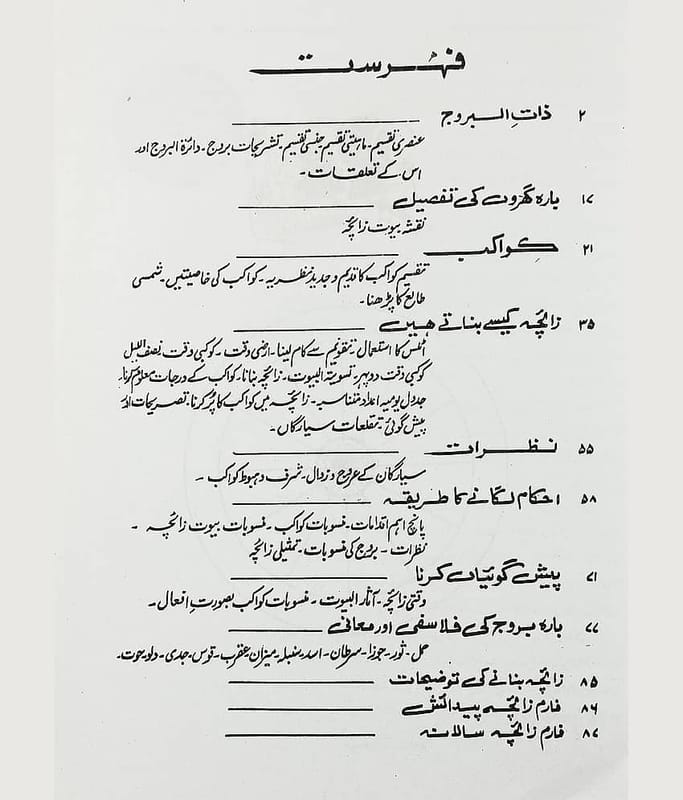 فہرست
۲ ذاتِ البروج
عنصری تقسیم۔ ماہیتی تقسیم جنسی تقسیم۔ تشریحات بروج۔ دائرۃ البروج اور
اس کے تعلقات۔
۱۷ بارہ گھروں کی تفصیل
نقشہ بیوت زائچہ
۲۱ کواکب
تقسیم کواکب کا قدیم و جدید نظریہ۔ کواکب کی خاصیتیں۔ شمسی
طالع کا پڑھنا۔
۳۵ زائچہ کیسے بناتے ہیں
اٹلس کا استعمال۔ تقویم سے کام لینا۔ ارضی وقت۔ کوکبی وقت نصف اللیل
کوکبی وقت دوپہر۔ تسویۃ البیوت۔ زائچہ بنانا۔ کواکب کے درجات معلوم کرنا۔
جدول یومیہ اعداد متناسبہ۔ زائچہ میں کواکب کا پُر کرنا۔ تصریحات
پیش گوئی۔ متعلقات سیارگاں۔
۵۵ نظرات
سیارگان کے عروج و زوال۔ شرف و ہبوط کواکب۔
۵۸ احکام لگانے کا طریقہ
پانچ اہم اقدامات۔ منسوبات کواکب۔ منسوبات بیوت زائچہ۔
نظرات۔ بروج کی منسوبات۔ تمثیلی زائچہ
۷۱ پیش گوئیاں کرنا
وقتی زائچہ۔ آثار البیوت۔ منسوبات کواکب بصورتِ افعال۔
۷۷ بارہ بروج کی فلاسفی اور معانی
حمل۔ ثور۔ جوزا۔ سرطان۔ اسد۔ سنبلہ۔ میزان۔ عقرب۔ قوس۔ جدی۔ دلو۔ حوت۔
۸۵ زائچہ بنانے کی توضیحات
۸۶ فارم زائچہ پیدائش
۸۷ فارم زائچہ سالانہ